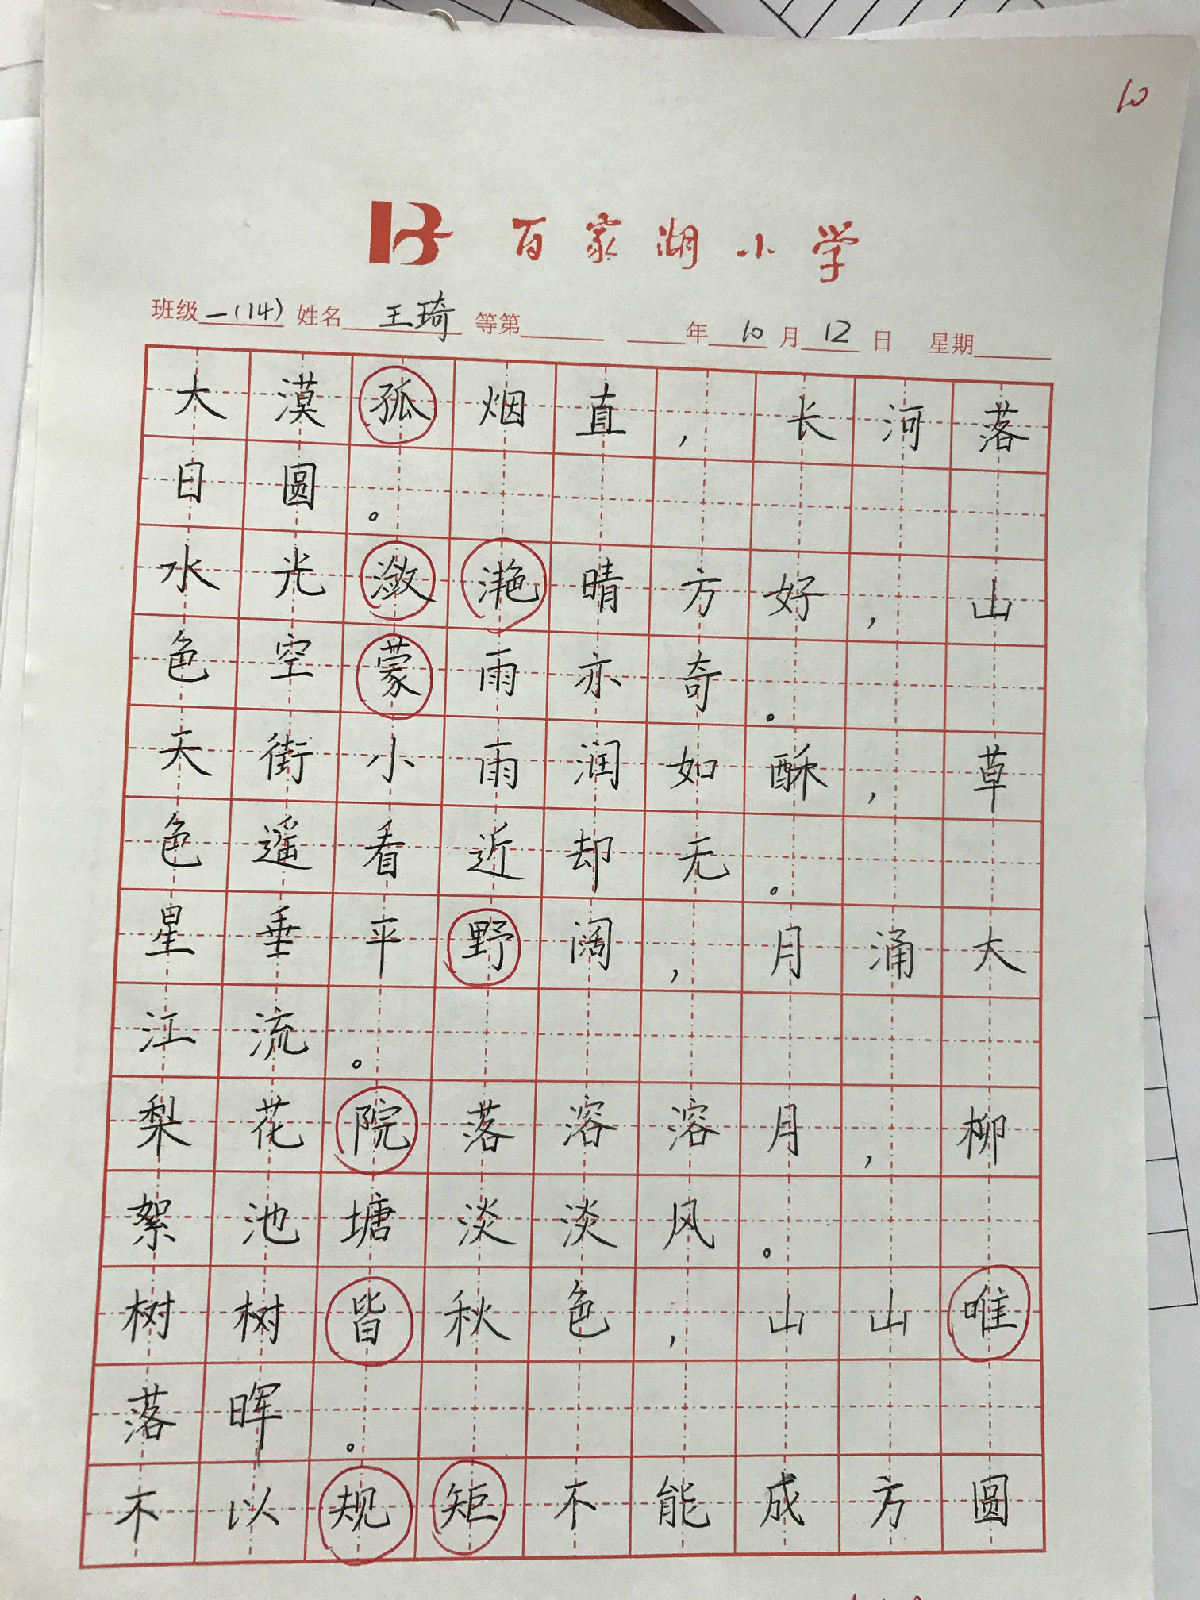 10
百家湖小学
班级 一(14) 姓名 王琦 等第 年 10 月 12 日 星期
大漠孤烟直，长河落
日圆。
水光潋滟晴方好，山
色空蒙雨亦奇。
天街小雨润如酥，草
色遥看近却无。
星垂平野阔，月涌大
江流。
梨花院落溶溶月，柳
絮池塘淡淡风。
树树皆秋色，山山唯
落晖。
不以规矩不能成方圆